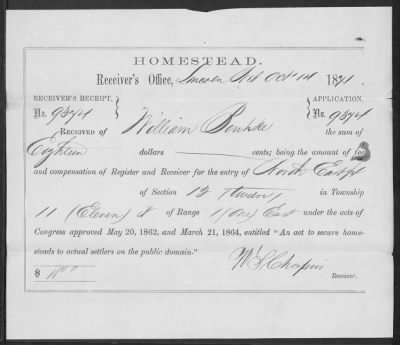 HOMESTEAD.
Receiver's Office, Lincoln Neb Oct 14 1871.
RECEIVER'S RECEIPT, APPLICATION,
No. 9874 No. 9874
RECEIVED OF William the sum of
Eighteen dollars cents; being the amount of fee
and compensation of Register and Receiver for the entry of North East ¼
of Section 12 (Twelve) in Township
11 (Eleven) N of Range 1 (One) East under the acts of
Congress approved May 20, 1862, and March 21, 1864, entitled "An act to secure home-
steads to actual settlers on the public domain."
$ 18.00 W S Chapin
Receiver.